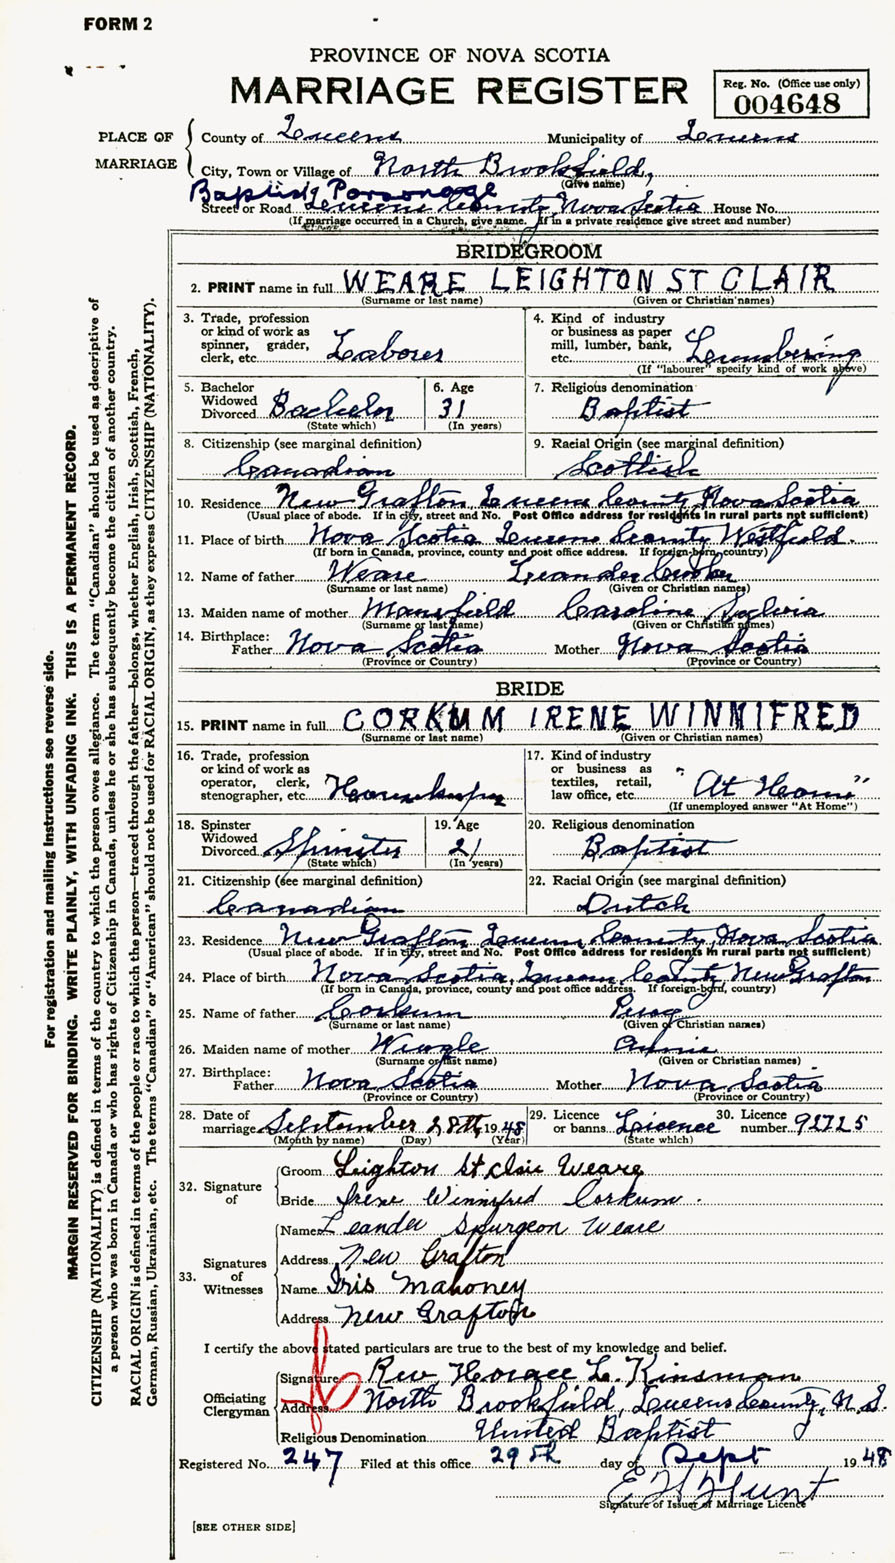 FORM 2
PROVINCE OF NOVA SCOTIA
MARRIAGE REGISTER
Reg. No. (Office use only)
004648
PLACE OF MARRIAGE
County of Queens Municipality of Queens
City, Town or Village of North Brookfield,
(Give name)
Baptist Parsonage
Street or Road Queens County, Nova Scotia House No.
(If marriage occurred in a Church, give name. If in a private residence give street and number)
BRIDEGROOM
2. PRINT name in full WEARE LEIGHTON ST CLAIR
(Surname or last name) (Given or Christian names)
3. Trade, profession or kind of work as spinner, grader, clerk, etc. Laborer
4. Kind of industry or business as paper mill, lumber, bank, etc. Lumbering
(If "labourer" specify kind of work above)
5. Bachelor Widowed Divorced Bachelor
(State which)
6. Age 31
(In years)
7. Religious denomination
Baptist
8. Citizenship (see marginal definition)
Canadian
9. Racial Origin (see marginal definition)
Scottish
10. Residence New Grafton, Queens County, Nova Scotia
(Usual place of abode. If in city, street and No. Post Office address for residents in rural parts not sufficient)
11. Place of birth Nova Scotia Queens County Westfield.
(If born in Canada, province, county and post office address. If foreign-born, country)
12. Name of father Weare Leander
(Surname or last name) (Given or Christian names)
13. Maiden name of mother Mansfield Caroline Sylvia
(Surname or last name) (Given or Christian names)
14. Birthplace:
Father Nova Scotia Mother Nova Scotia
(Province or Country) (Province or Country)
BRIDE
15. PRINT name in full CORKUM IRENE WINNIFRED
(Surname or last name) (Given or Christian names)
16. Trade, profession or kind of work as operator, clerk, stenographer, etc. Housekeeper
17. Kind of industry or business as textiles, retail, law office, etc. "At Home"
(If unemployed answer "At Home")
18. Spinster Widowed Divorced Spinster
(State which)
19. Age 21
(In years)
20. Religious denomination
Baptist
21. Citizenship (see marginal definition)
Canadian
22. Racial Origin (see marginal definition)
Dutch
23. Residence New Grafton, Queens County, Nova Scotia
(Usual place of abode. If in city, street and No. Post Office address for residents in rural parts not sufficient)
24. Place of birth Nova Scotia, Queens County, New Grafton
(If born in Canada, province, county and post office address. If foreign-born, country)
25. Name of father Corkum Percy
(Surname or last name) (Given or Christian names)
26. Maiden name of mother Winn Annie
(Surname or last name) (Given or Christian names)
27. Birthplace:
Father Nova Scotia Mother Nova Scotia
(Province or Country) (Province or Country)
28. Date of marriage September 28th, 1948
(Month by name) (Day) (Year)
29. Licence or banns Licence
(State which)
30. Licence number 92725
32. Signature of
Groom Leighton St Clair Weare
Bride Irene Winnifred Corkum.
33. Signatures of Witnesses
Name Leander Spurgeon Weare
Address New Grafton
Name Iris Mahoney
Address New Grafton
I certify the above stated particulars are true to the best of my knowledge and belief.
Officiating Clergyman
Signature Rev. Horace L. Kinsman
Address North Brookfield, Queens County, N.S.
Religious Denomination United Baptist
Registered No. 247 Filed at this office 29th day of Sept 1948
E H Hunt
Signature of Issuer of Marriage Licence
[SEE OTHER SIDE]
For registration and mailing instructions see reverse side.
MARGIN RESERVED FOR BINDING. WRITE PLAINLY, WITH UNFADING INK. THIS IS A PERMANENT RECORD.
CITIZENSHIP (NATIONALITY) is defined in terms of the country to which the person owes allegiance. The term "Canadian" should be used as descriptive of
a person who was born in Canada or who has rights of Citizenship in Canada, unless he or she has subsequently become the citizen of another country.
RACIAL ORIGIN is defined in terms of the people or race to which the person—traced through the father—belongs, whether English, Irish, Scottish, French,
German, Russian, Ukrainian, etc. The terms "Canadian" or "American" should not be used for RACIAL ORIGIN, as they express CITIZENSHIP (NATIONALITY).